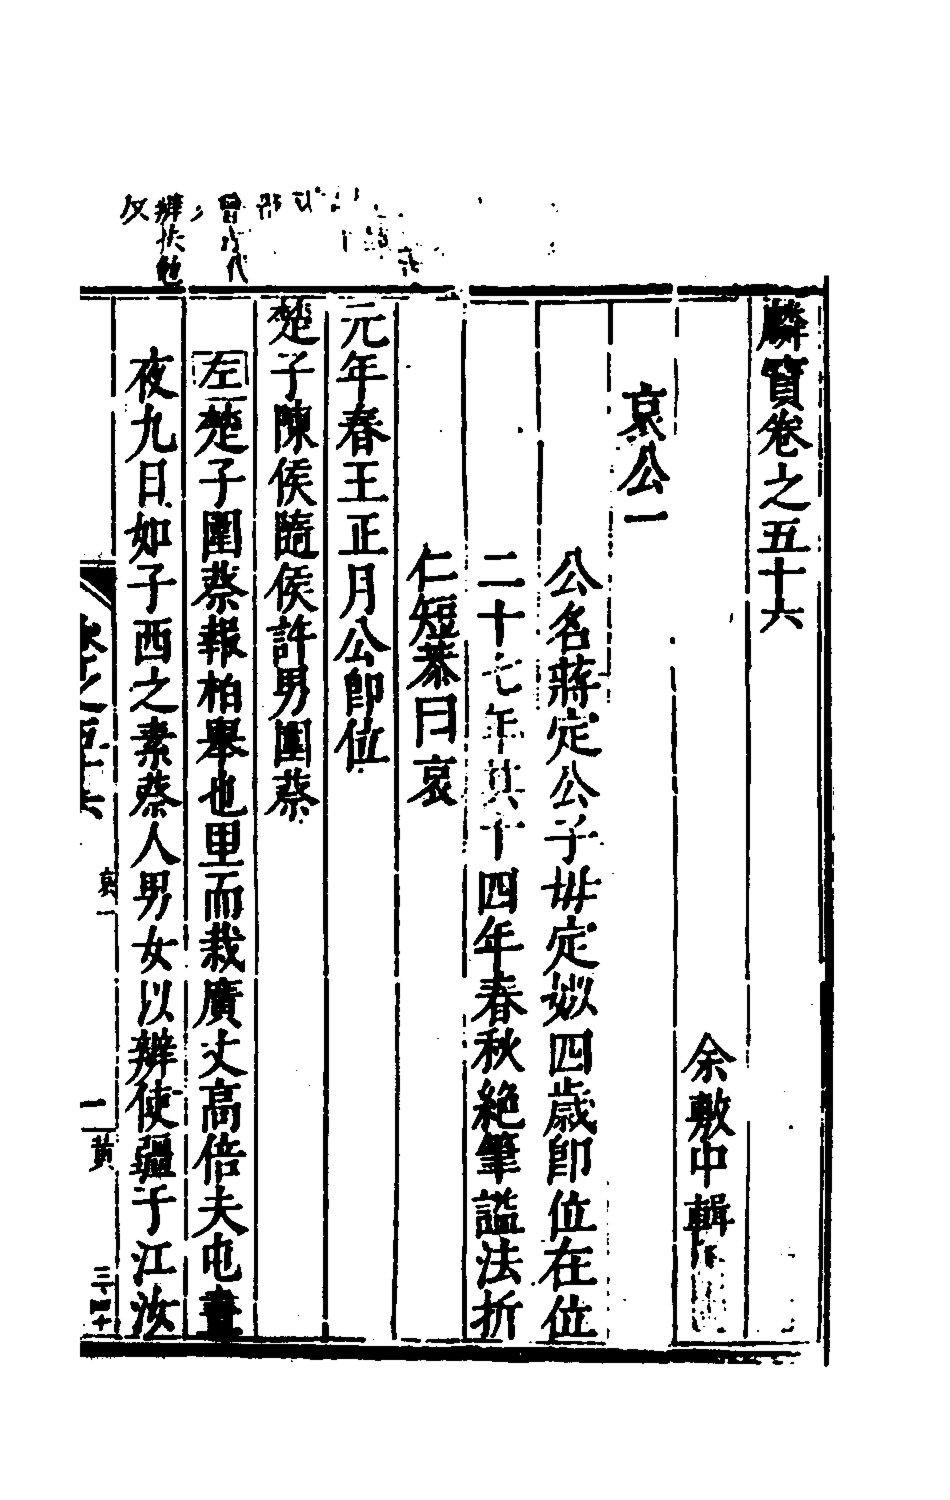 麟寶卷之五十六
余敷中輯
哀公一
公名蔣定公子毋定姒四歲卽位在位
二十七年其十四年春秋絶筆謚法折
仁短恭曰哀
元年春王正月公卽位
楚子陳侯隨侯許男圍蔡
左楚子圍蔡報柏舉也里而栽廣丈高倍夫屯晝
夜九日如子西之素蔡人男女以辨使疆于江汝
哀一
一
黃
三四十